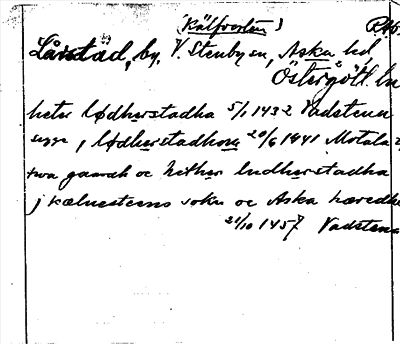 (Kälfvesten) RAp.
Lårstad, by, V. Stenby sn, Aska hd,
Östergötl. ln
heter lødherstadha 5/1 1432 Vadstena
sygge j lødherstadhom 20/6 1441 Motala
twa gaardh oc hether ludherstadha
j kæluesteens sokn oc Aska hæredhe
21/10 1457 Vadstena